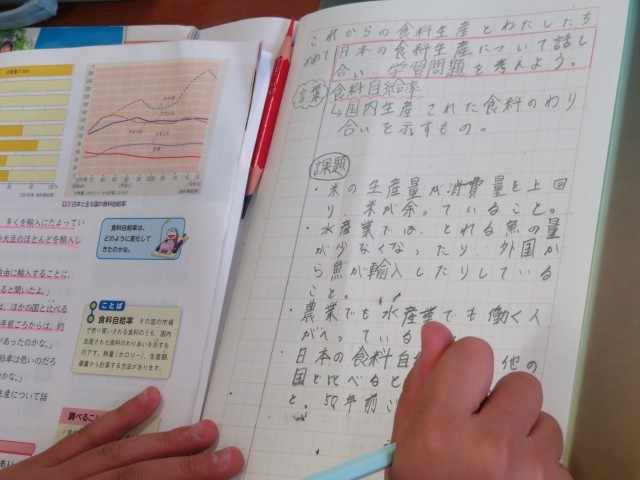 これからの食料生産とわたしたち
めあて
日本の食料生産について話し
合い、学習問題を考えよう。
言葉
食料自給率
↳国内生産された食料のわり
合いを示すもの。
課題
・米の生産量が消費量を上回
り、米が余っていること。
・水産業では、とれる魚の量
が少なくなったり、外国か
ら魚が輸入したりしている
こと。
・農業でも水産業でも働く人
がへっている
・日本の食料自給
他の
国と比べると
と。50年前
多くを輸入にたよってい
大豆のほとんどを輸入し
自由に輸入することに、
ると聞いたよ。」
は、ほかの国と比べる
年前ごろからは、約
があったのかな。」
給率は低いのだろ
のかな。」
生産について話
日本と主な国の食料自給率
食料自給率は、
どのように変化して
きたのかな。
ことば
食料自給率 その国の市場
で売り買いされる食料のうち、国内
生産された食料のわりあいを示すも
のです。熱量(カロリー)、生産額、
重量から計算する方法があります。
調べること